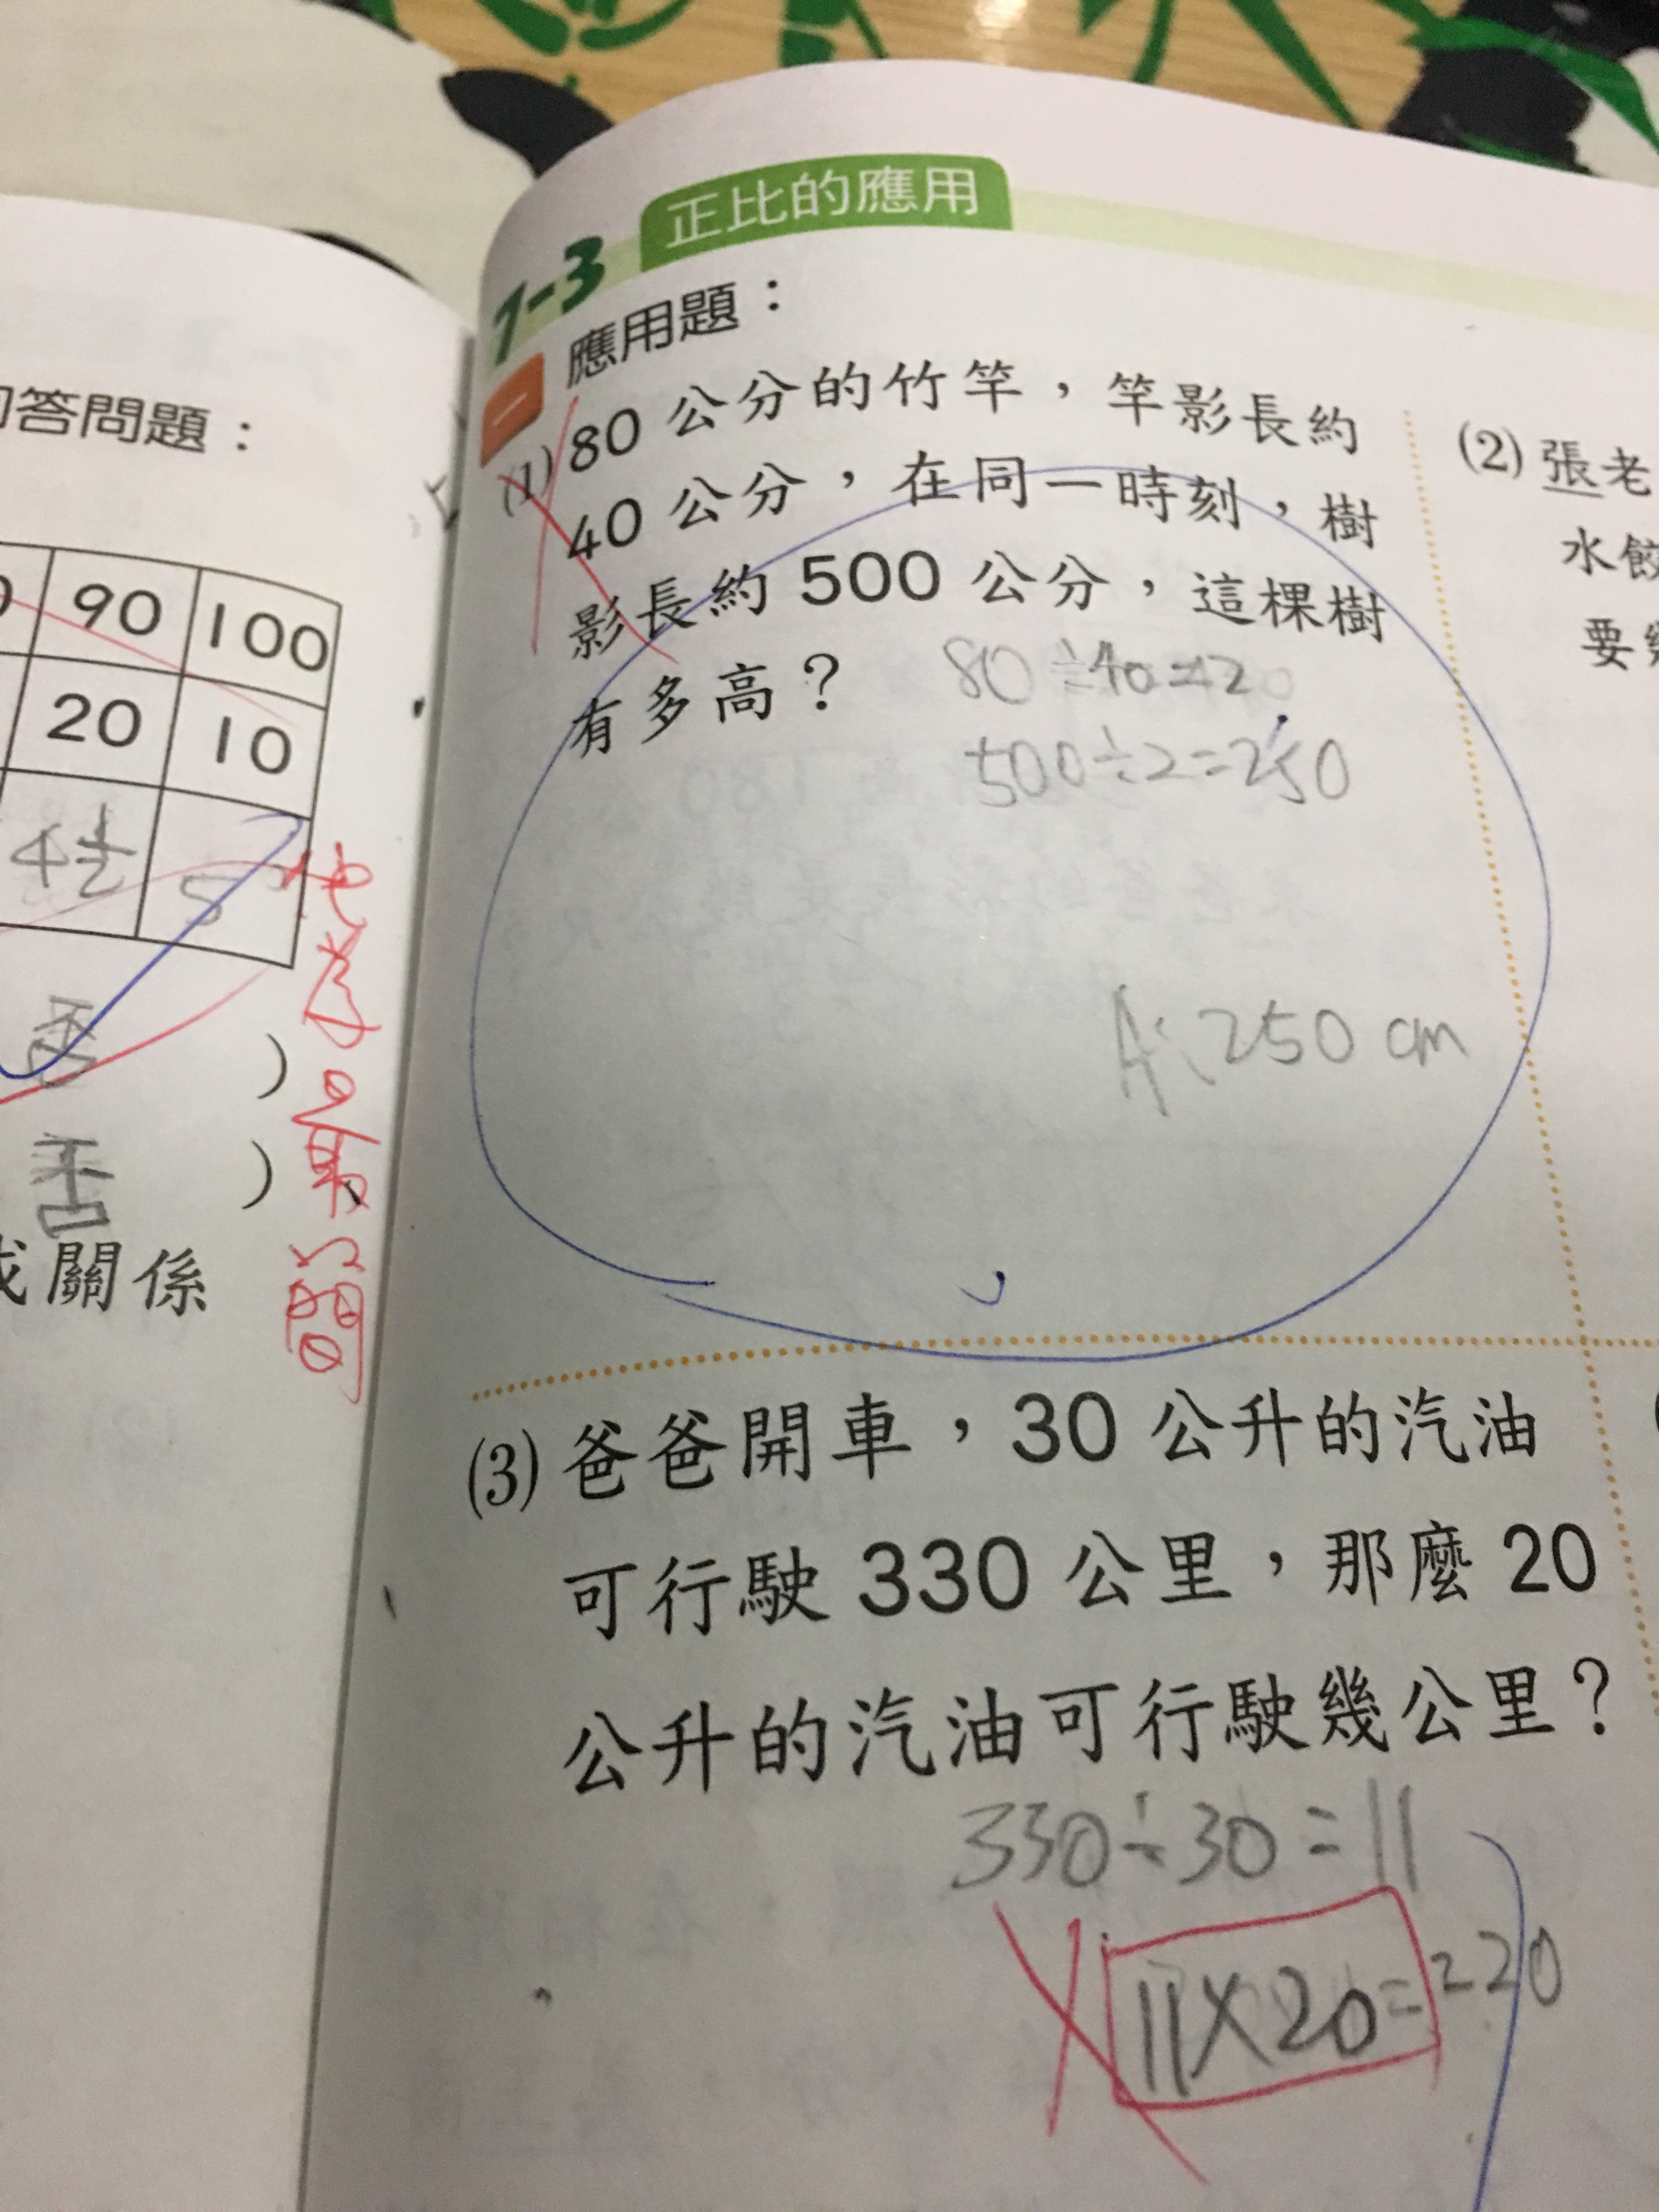 答問題：
90 100
20 10
4½ 5
否 )
否 )
關係
7-3 正比的應用
一 應用題：
(1) 80 公分的竹竿，竿影長約
40 公分，在同一時刻，樹
影長約 500 公分，這棵樹
有多高？
80÷40=2
500÷2=250
A: 250 cm
(2) 張老
水餃
要
(3) 爸爸開車，30 公升的汽油
可行駛 330 公里，那麼 20
公升的汽油可行駛幾公里？
330÷30=11
11×20=220